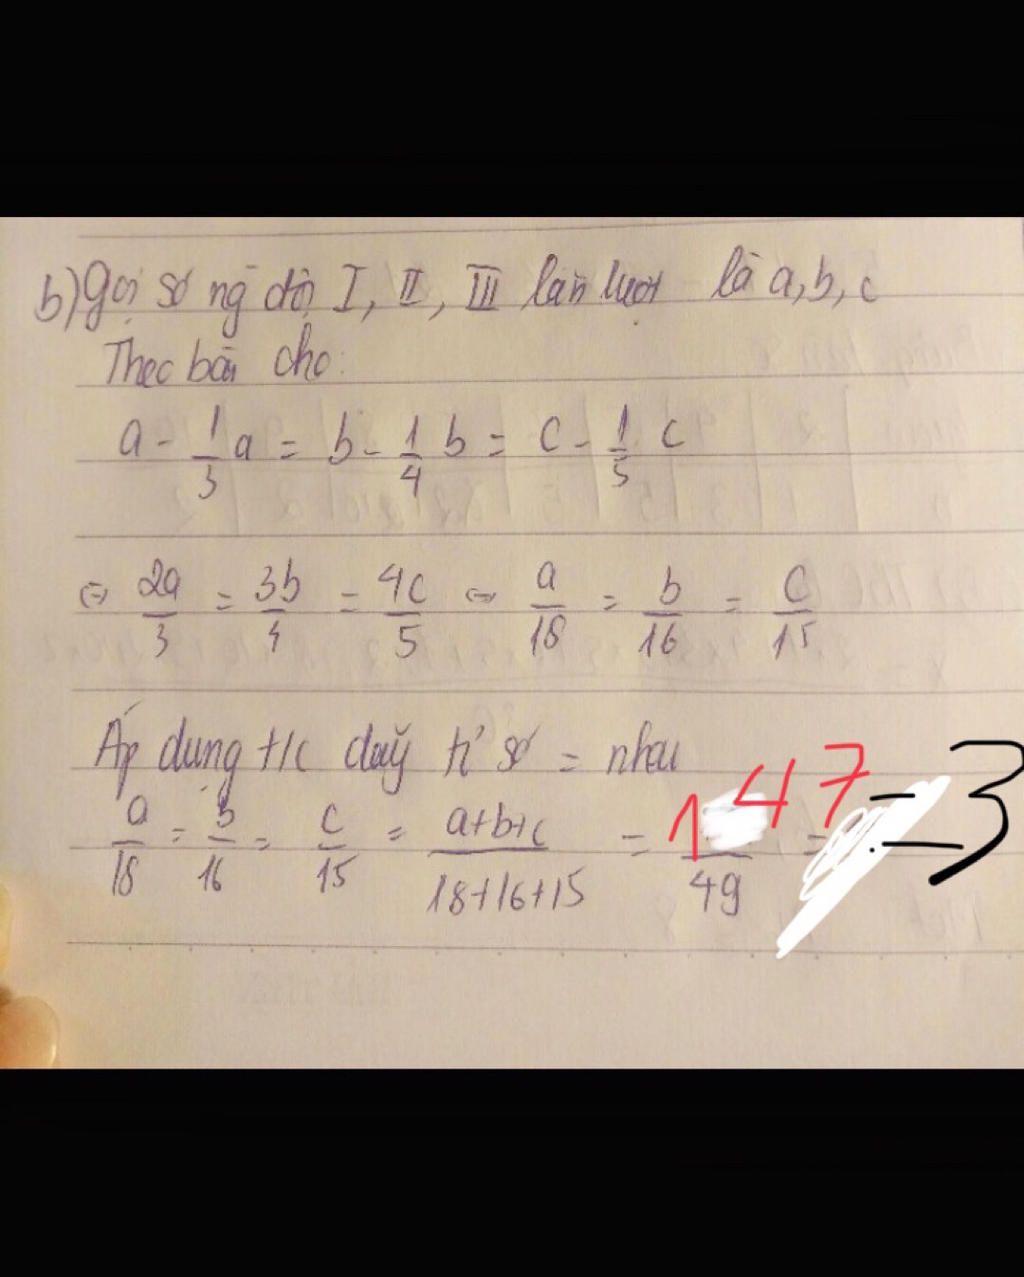 b) Gọi số ng đội I, II, III lần lượt là a, b, c
Theo bài cho:
a - 1/3 a = b - 1/4 b = c - 1/5 c
⇔ 2a/3 = 3b/4 = 4c/5 ⇔ a/18 = b/16 = c/15
Áp dụng t/c dãy tỉ số = nhau
a/18 = b/16 = c/15 = a+b+c/18+16+15 = 147/49 = 3